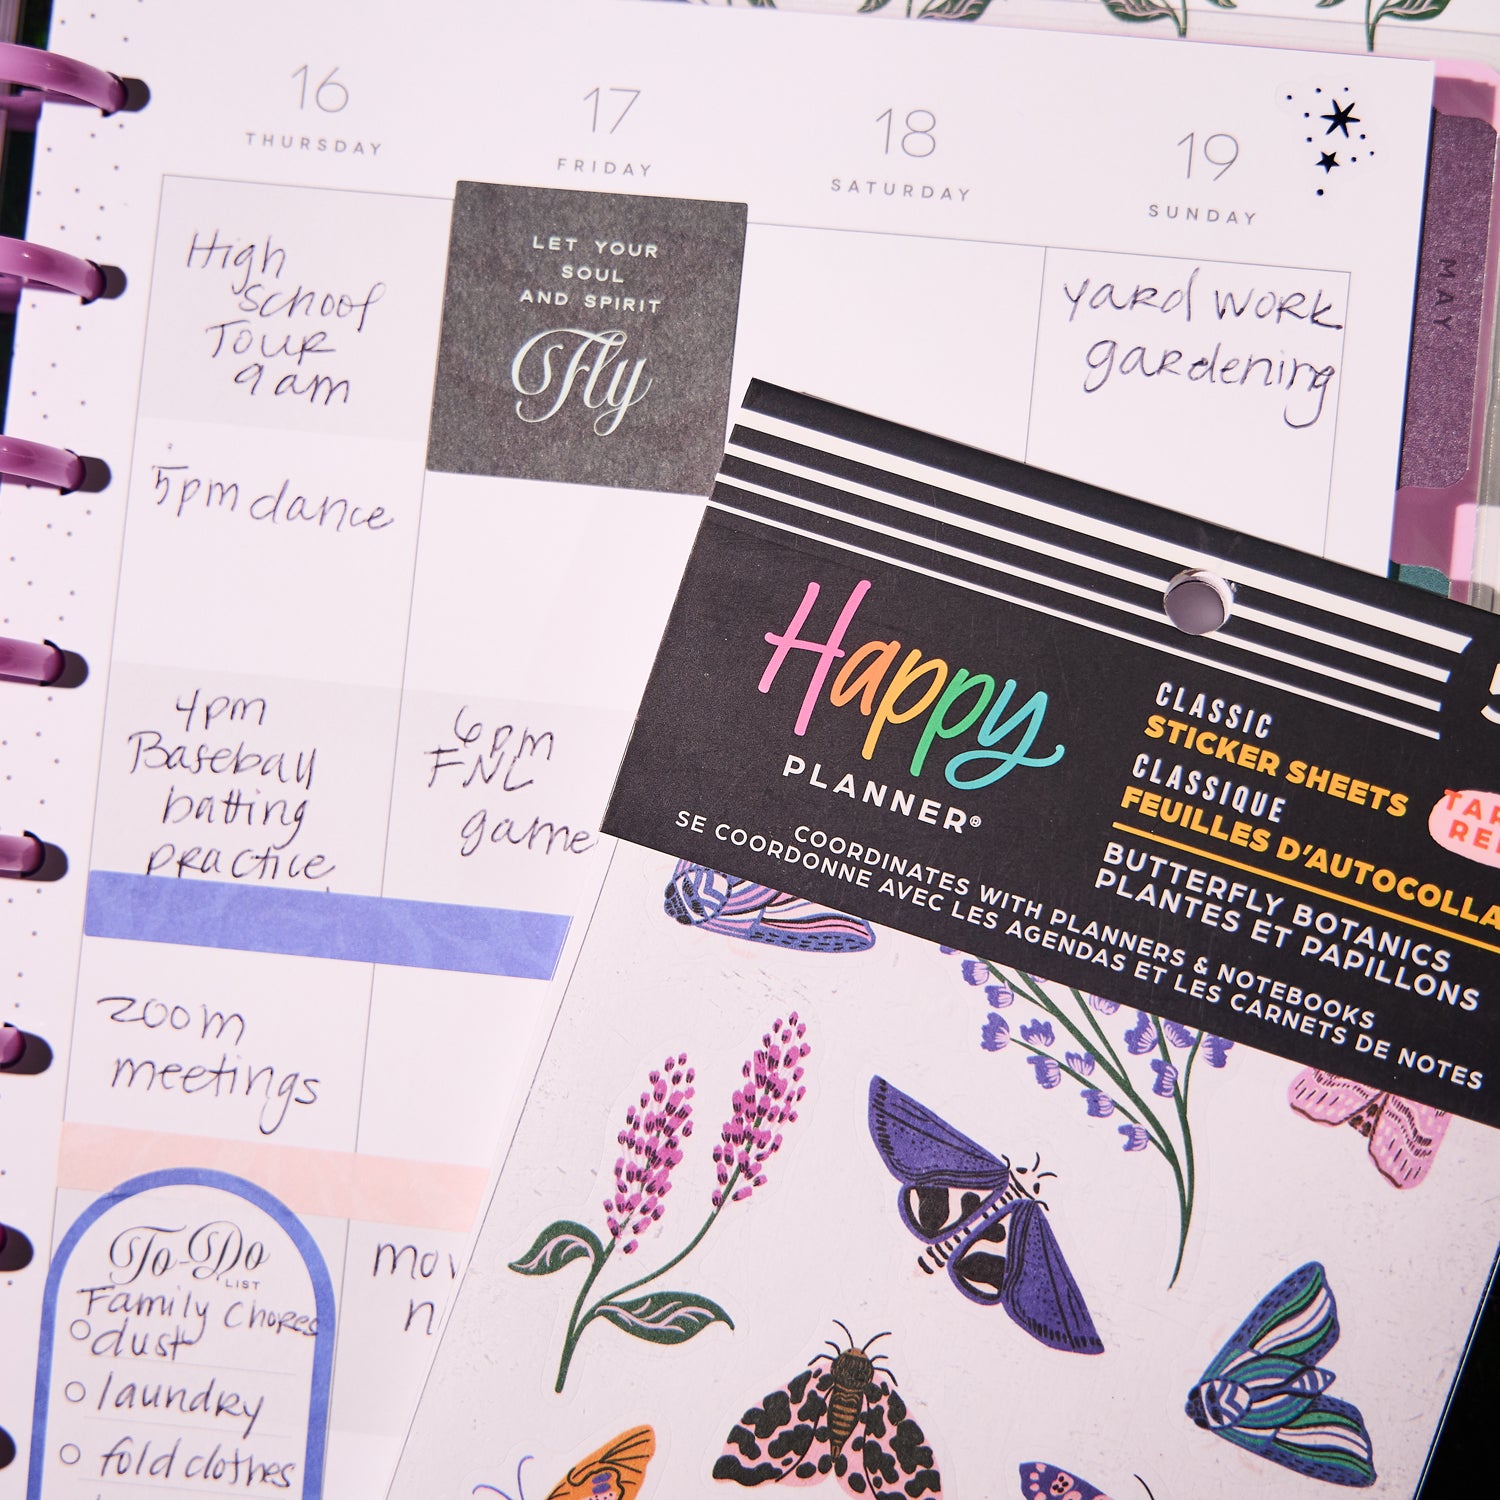 16
THURSDAY
17
FRIDAY
18
SATURDAY
19
SUNDAY
MAY
High
school
Tour
9am
5pm dance
4pm
Baseball
batting
practice
zoom
meetings
To-Do
LIST
Family Chores
dust
laundry
fold clothes
LET YOUR
SOUL
AND SPIRIT
Fly
6pm
FNL
game
yard work
gardening
Happy
PLANNER®
COORDINATES WITH PLANNERS & NOTEBOOKS
SE COORDONNE AVEC LES AGENDAS ET LES CARNETS DE NOTES
CLASSIC
STICKER SHEETS
CLASSIQUE
FEUILLES D'AUTOCOLLA
BUTTERFLY BOTANICS
PLANTES ET PAPILLONS